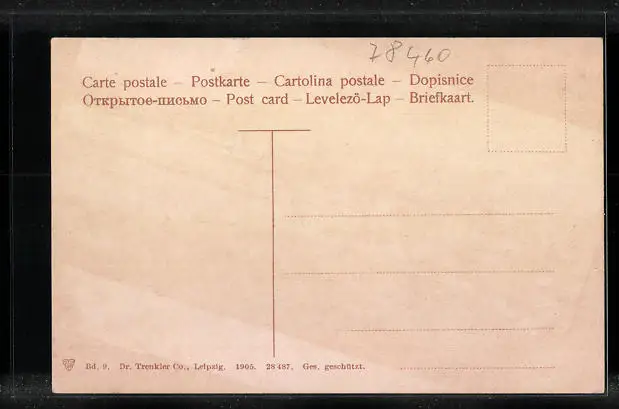 78460
Carte postale – Postkarte – Cartolina postale – Dopisnice
Открытое-письмо – Post card – Levelező-Lap – Briefkaart.
Bd. 9. Dr. Trenkler Co., Leipzig. 1905. 28 487. Ges. geschützt.